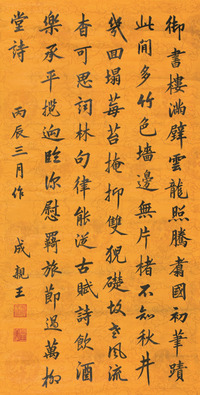 御書樓滿壁雲龍照騰翥國初筆蹟
此間多竹色墻邊無片楮不知秋井
幾回塌莓苔掩抑雙猊礎故老風流
杳可思詞林句律能從古賦詩飲酒
樂承平攬逈臨深慰羈旅節過萬柳
堂詩 丙辰三月作 成親王